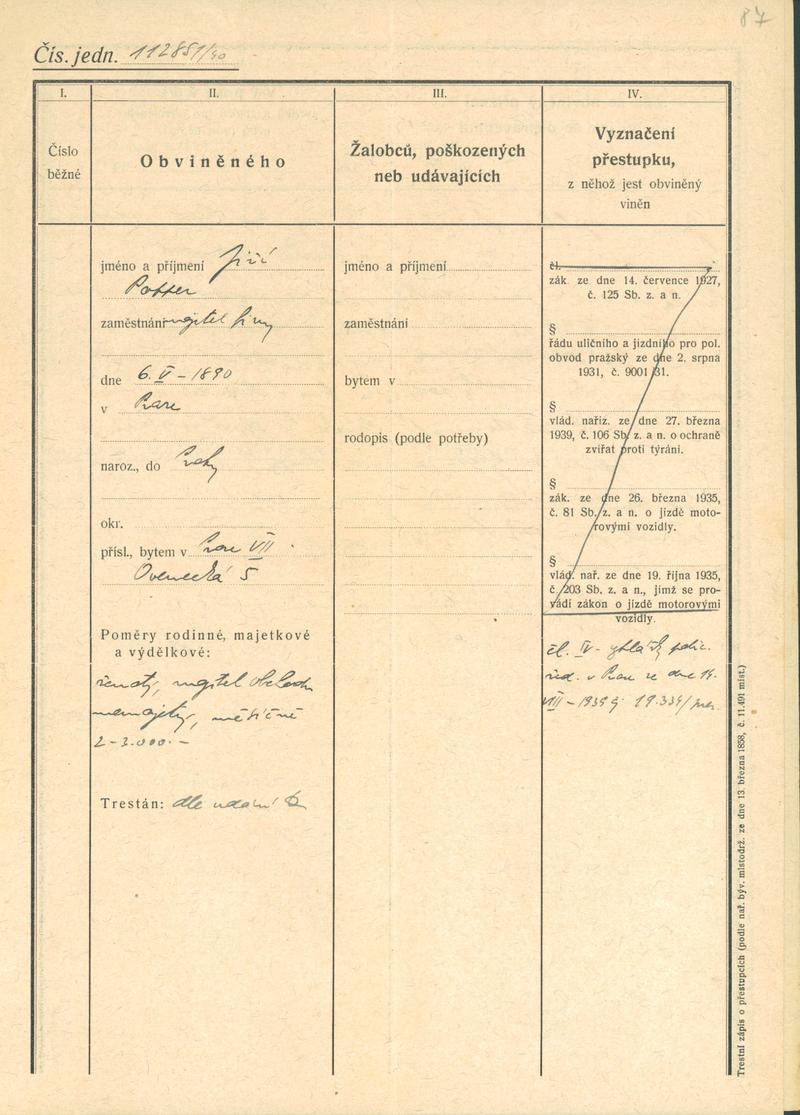 87
Čís. jedn. 112851/40
I.
Číslo
běžné
II.
Obviněného
III.
Žalobců, poškozených
neb udávajících
IV.
Vyznačení
přestupku,
z něhož jest obviněný
viněn
jméno a příjmení Jiří
Potter
zaměstnání majitel firmy
dne 6. V - 1890
v Praze
naroz., do Prahy
okr.
přísl., bytem v Praze VII
Ovenecká 5
Poměry rodinné, majetkové
a výdělkové:
ženatý, majitel obchodu
nemajetný, měsíčně
2-3.000.-
Trestán: dle udání
jméno a příjmení
zaměstnání
bytem v
rodopis (podle potřeby)
čl.
zák ze dne 14. července 1927,
č. 125 Sb. z. a n.
§
řádu uličního a jízdního pro pol.
obvod pražský ze dne 2. srpna
1931, č. 9001/31.
§
vlád. naříz. ze dne 27. března
1939, č. 106 Sb. z. a n. o ochraně
zvířat proti týrání.
§
zák. ze dne 26. března 1935,
č. 81 Sb. z. a n. o jízdě moto-
rovými vozidly.
§
vlád. nař. ze dne 19. října 1935,
č. 203 Sb. z. a n., jímž se pro-
vádí zákon o jízdě motorovými
vozidly.
čl. IV - vyhlášky polic.
řed. v Praze ze dne 14.
VIII - 1939 č. 19.334/pres.
Trestní zápis o přestupcích (podle nař. býv. místodrž. ze dne 13. března 1858, č. 11.491 míst.)